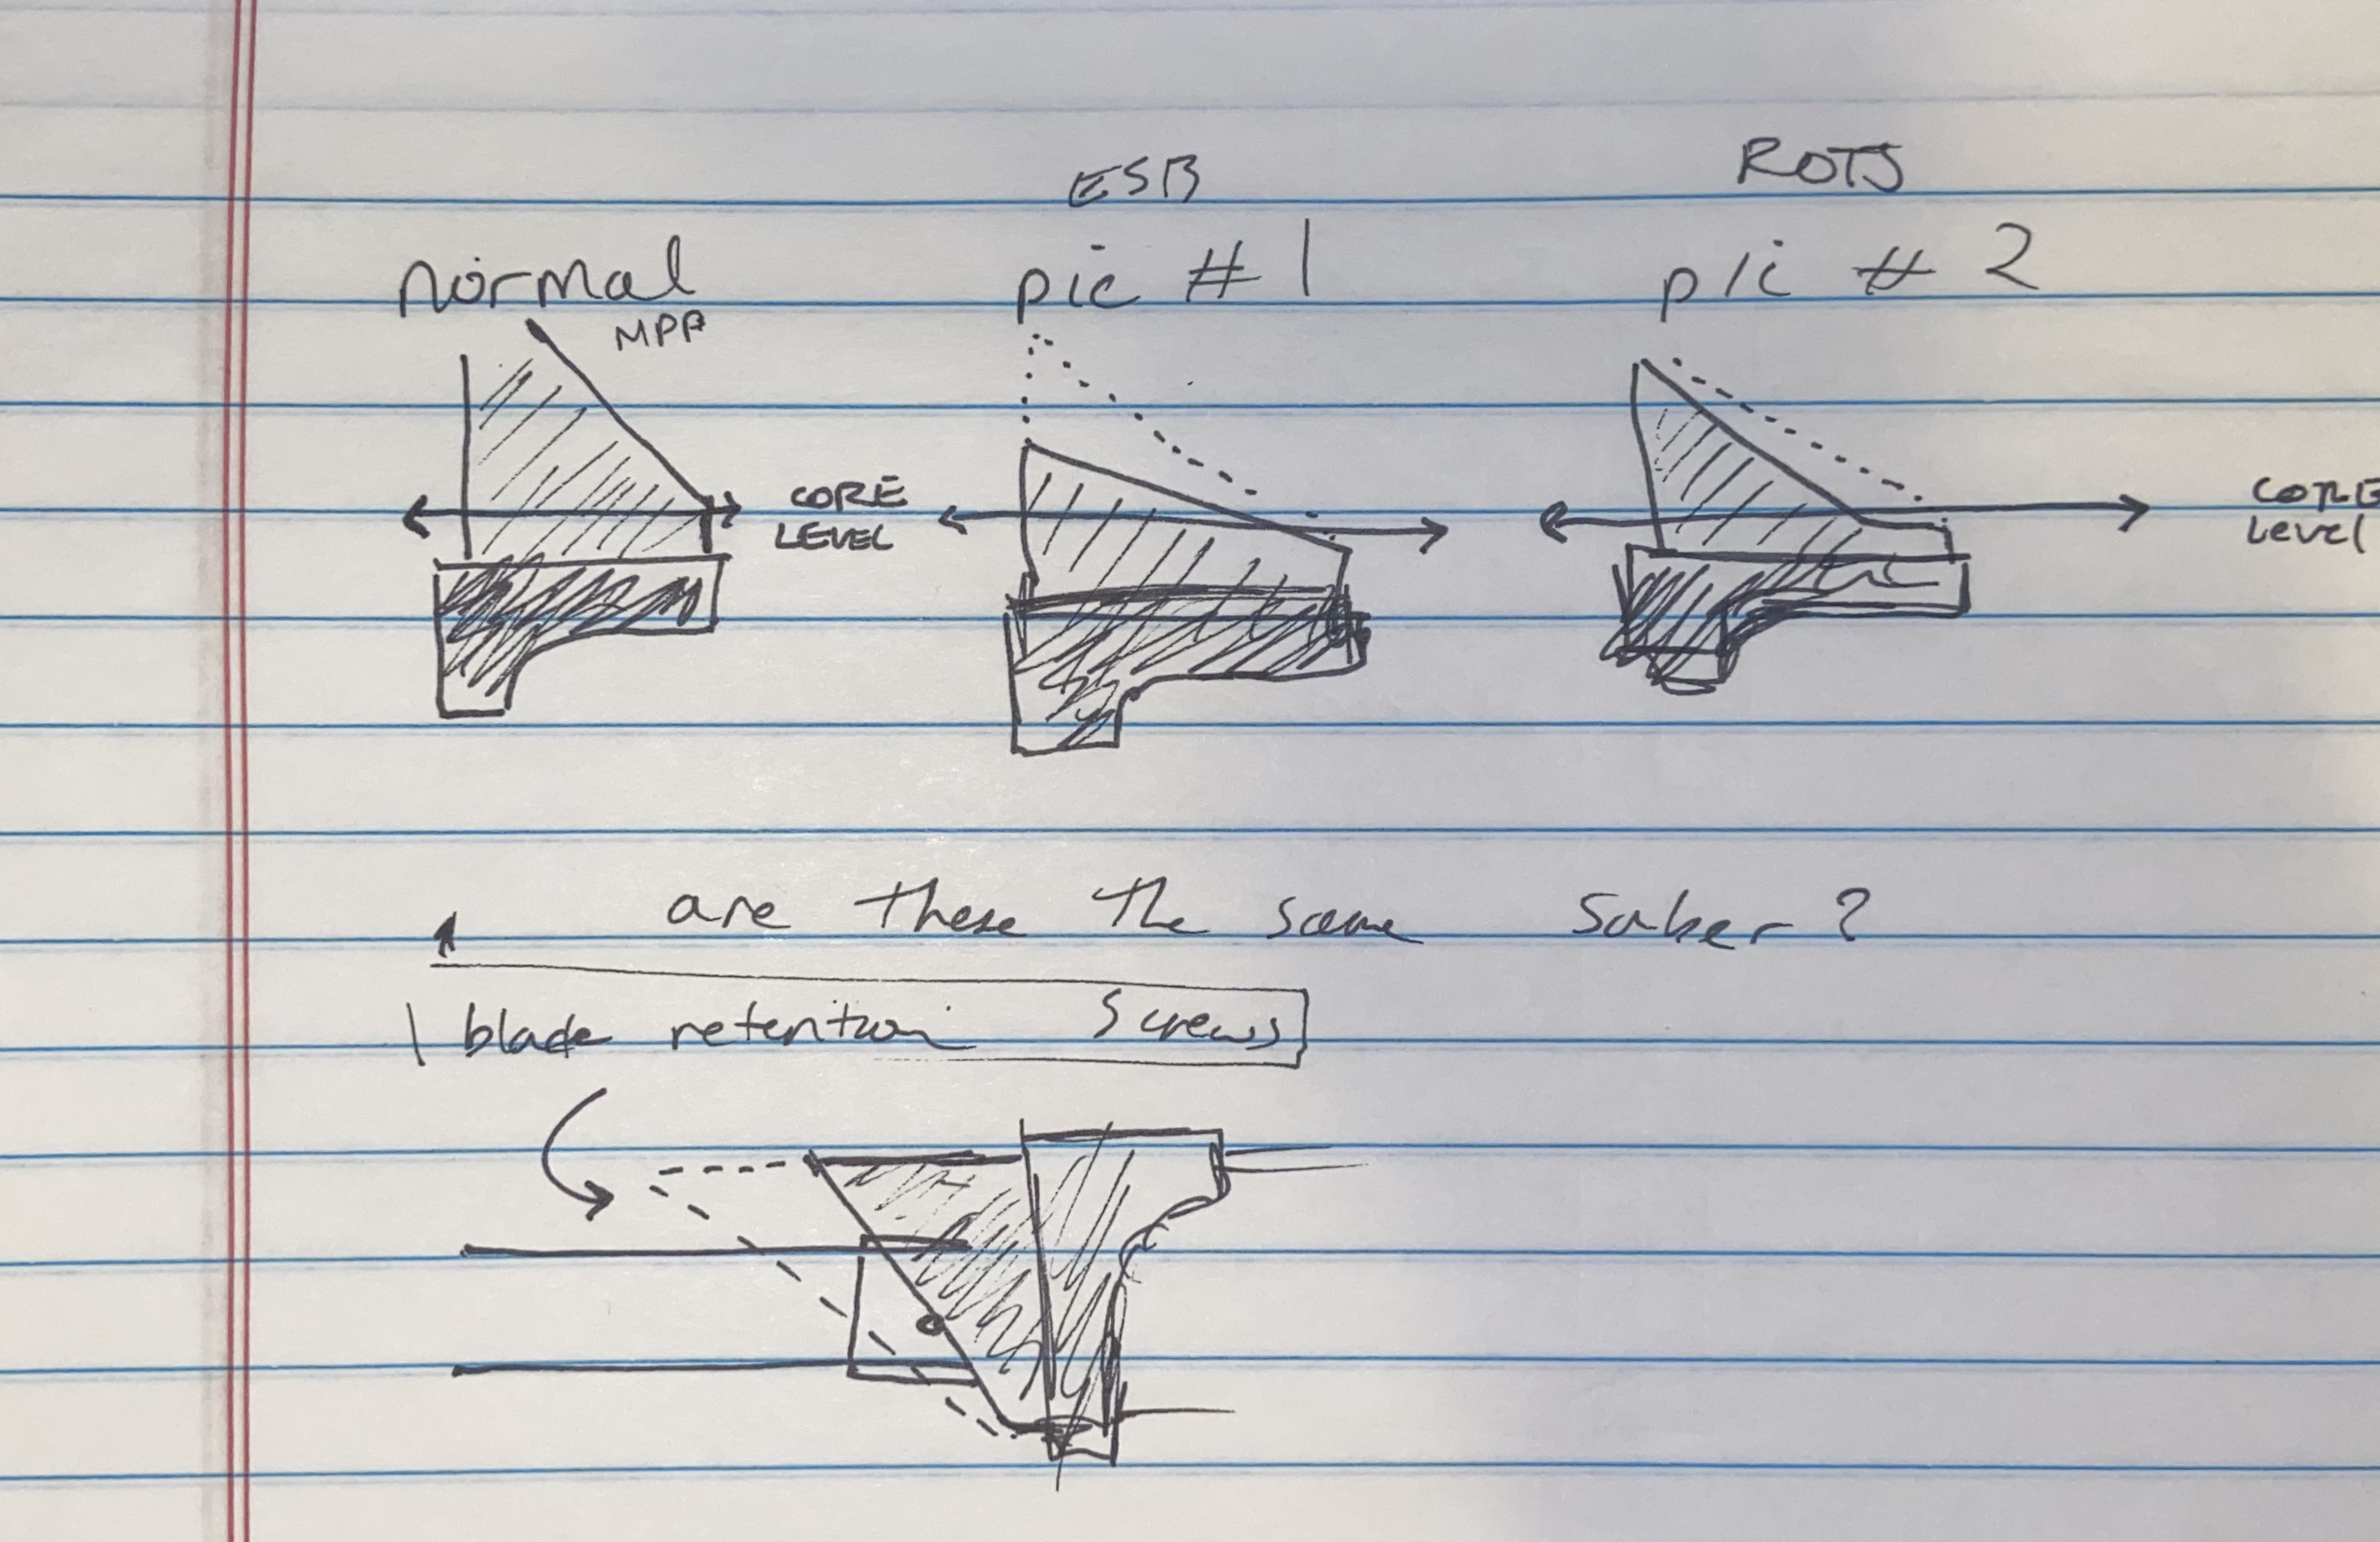 ESB
ROTJ
normal
pic # 1
pic # 2
MPP
CORE
LEVEL
CORE
Level
are these the same saber?
1 blade retention screws